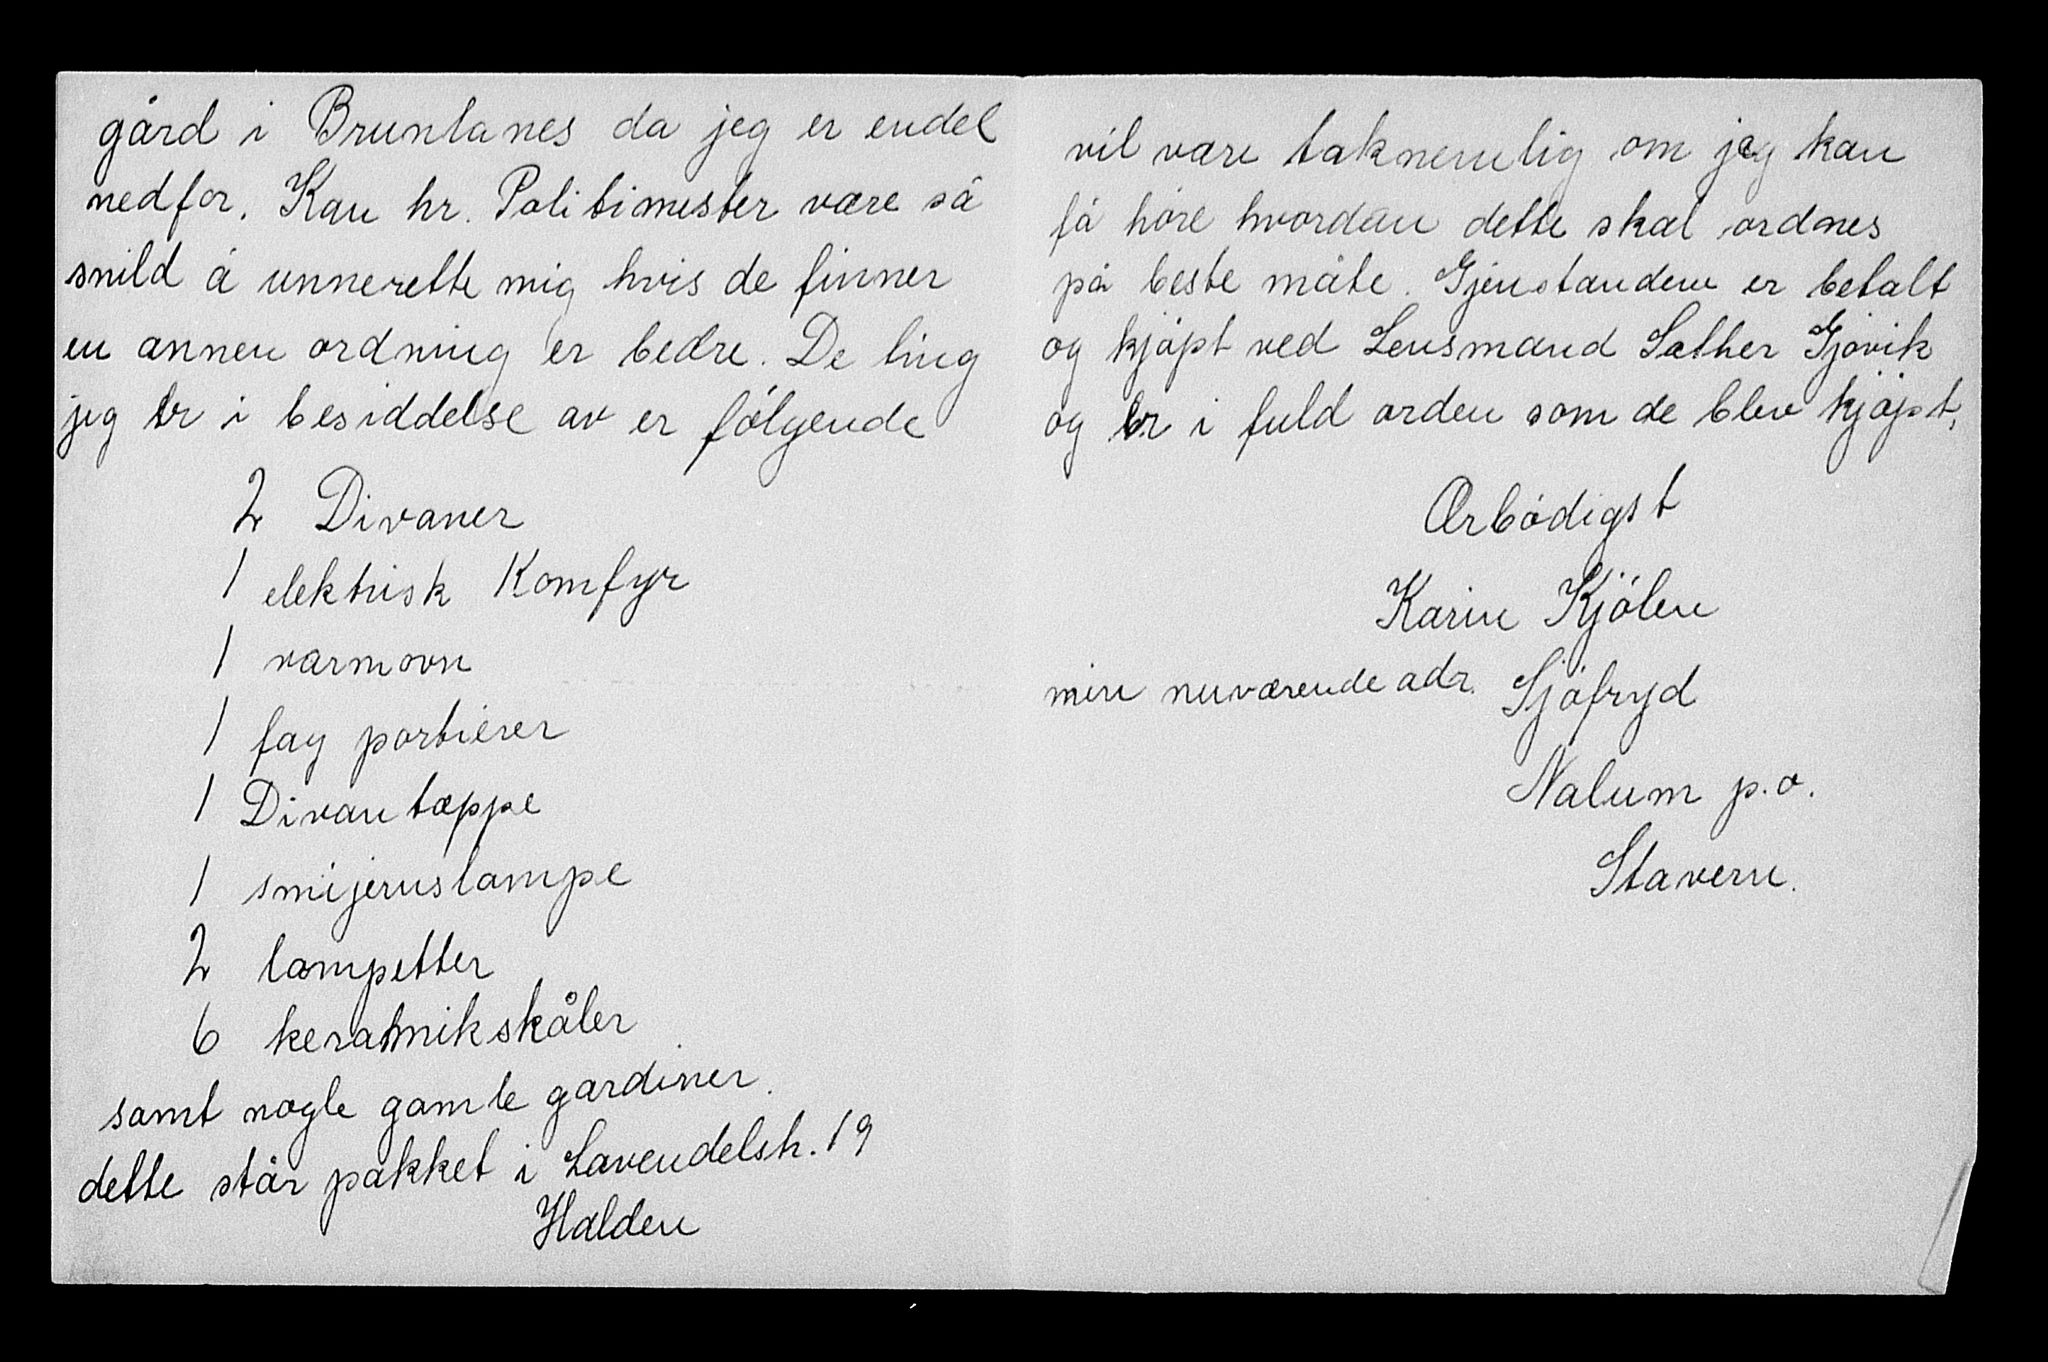 gård i Brunlanes da jeg er endel
nedfor. Kan hr. Politimester være så
snild å unnerette mig hvis de finner
en annen ordning er bedre. De ting
jeg er i besiddelse av er følgende
2 Divaner
1 elektrisk Komfyr
1 varmovn
1 fag portierer
1 Divantæppe
1 smijernslampe
2 lampetter
6 keramikskåler
samt nogle gamle gardiner.
dette står pakket i Lavendelsk. 19
Halden
vil være taknemlig om jeg kan
få høre hvordan dette skal ordnes
på beste måte. Gjenstandene er betalt
og kjøpt ved Lensmand Sæther Gjøvik
og er i fuld orden som de blev kjøpt,
Ærbødigst
Karin Kjølen
min nuværende adr. Sjøfryd
Nalum p.o.
Stavern.